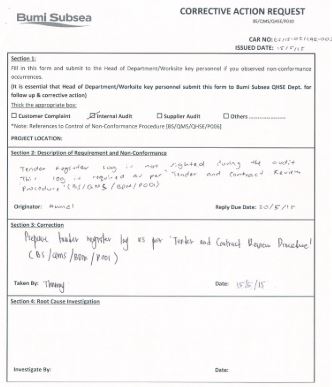 Bumi Subsea
CORRECTIVE ACTION REQUEST
BS/QMS/QHSE/P030
CAR NO:
ISSUED DATE: 15/5/15
Section 1:
Fill in this form and submit to the Head of Department/Worksite key personnel if you observed non-conformance
occurrences.
(It is essential that Head of Department/Worksite key personnel submit this form to Bumi Subsea QHSE Dept. for
follow up & corrective action)
Thick the appropriate box:
Customer Complaint Internal Audit Supplier Audit Others
*Note: References to Control of Non-Conformance Procedure [BS/QMS/QHSE/P06]
PROJECT LOCATION:
Section 2: Description of Requirement and Non-Conformance
Tender Register Log is not sighted during the audit
This log is required as per Tender and Contract Review
Procedure (BS/QMS/BDM/P001)
Originator: Reply Due Date: 20/5/15
Section 3: Correction
Prepare tender register log as per 'Tender and Contract Review Procedure'
(BS/QMS/BDM/P001)
Taken By: Date: 15/5/15
Section 4: Root Cause Investigation
Investigate By: Date: